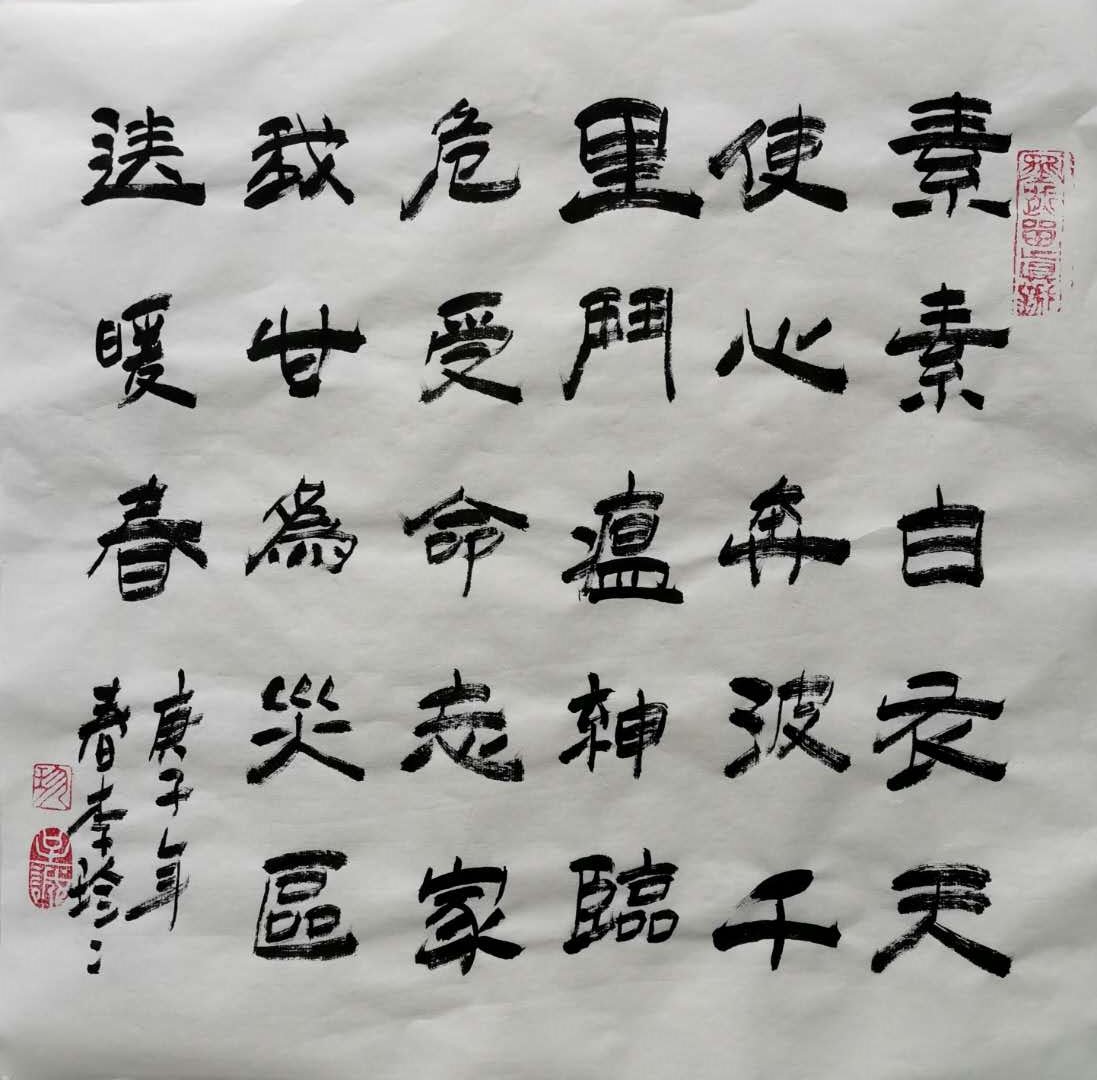 素素白衣天
使心奔波千
里鬥瘟神臨
危受命忘家
我甘為災區
送暖春
庚子年
春李珍〻